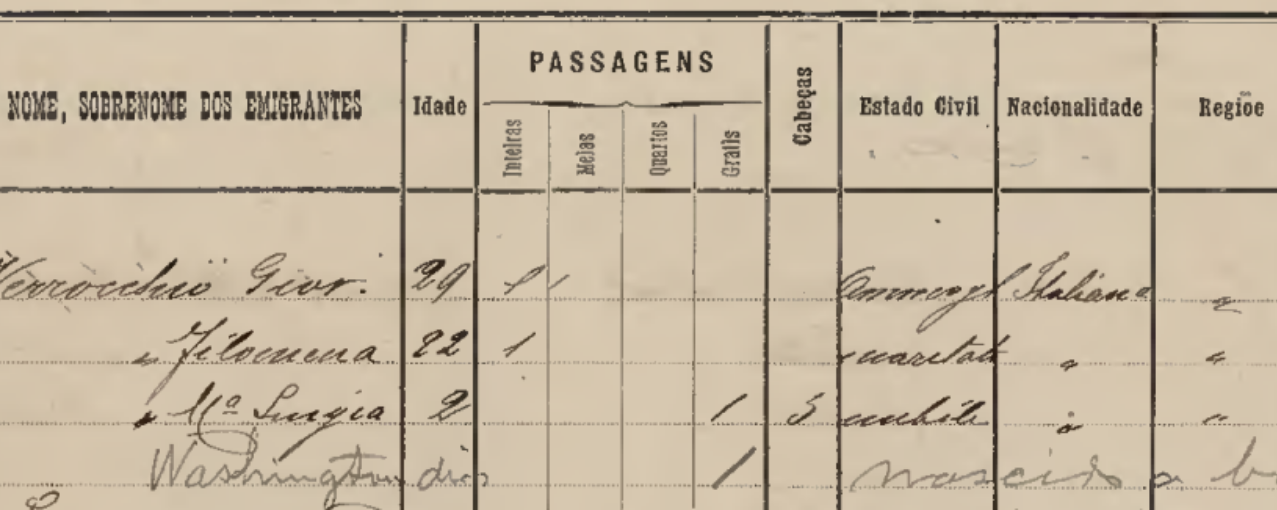 NOME, SOBRENOME DOS EMIGRANTES Idade PASSAGENS Cabeças Estado Civil Nacionalidade Regiõe
Inteiras Meias Quartos Gratis
Verrocchio Giov. 29 1 Ammogl Italiana "
" Filomena 22 1 maritat " "
" Mª Luigia 2 1 3 nubile " "
Washington dias 1 nascido a b